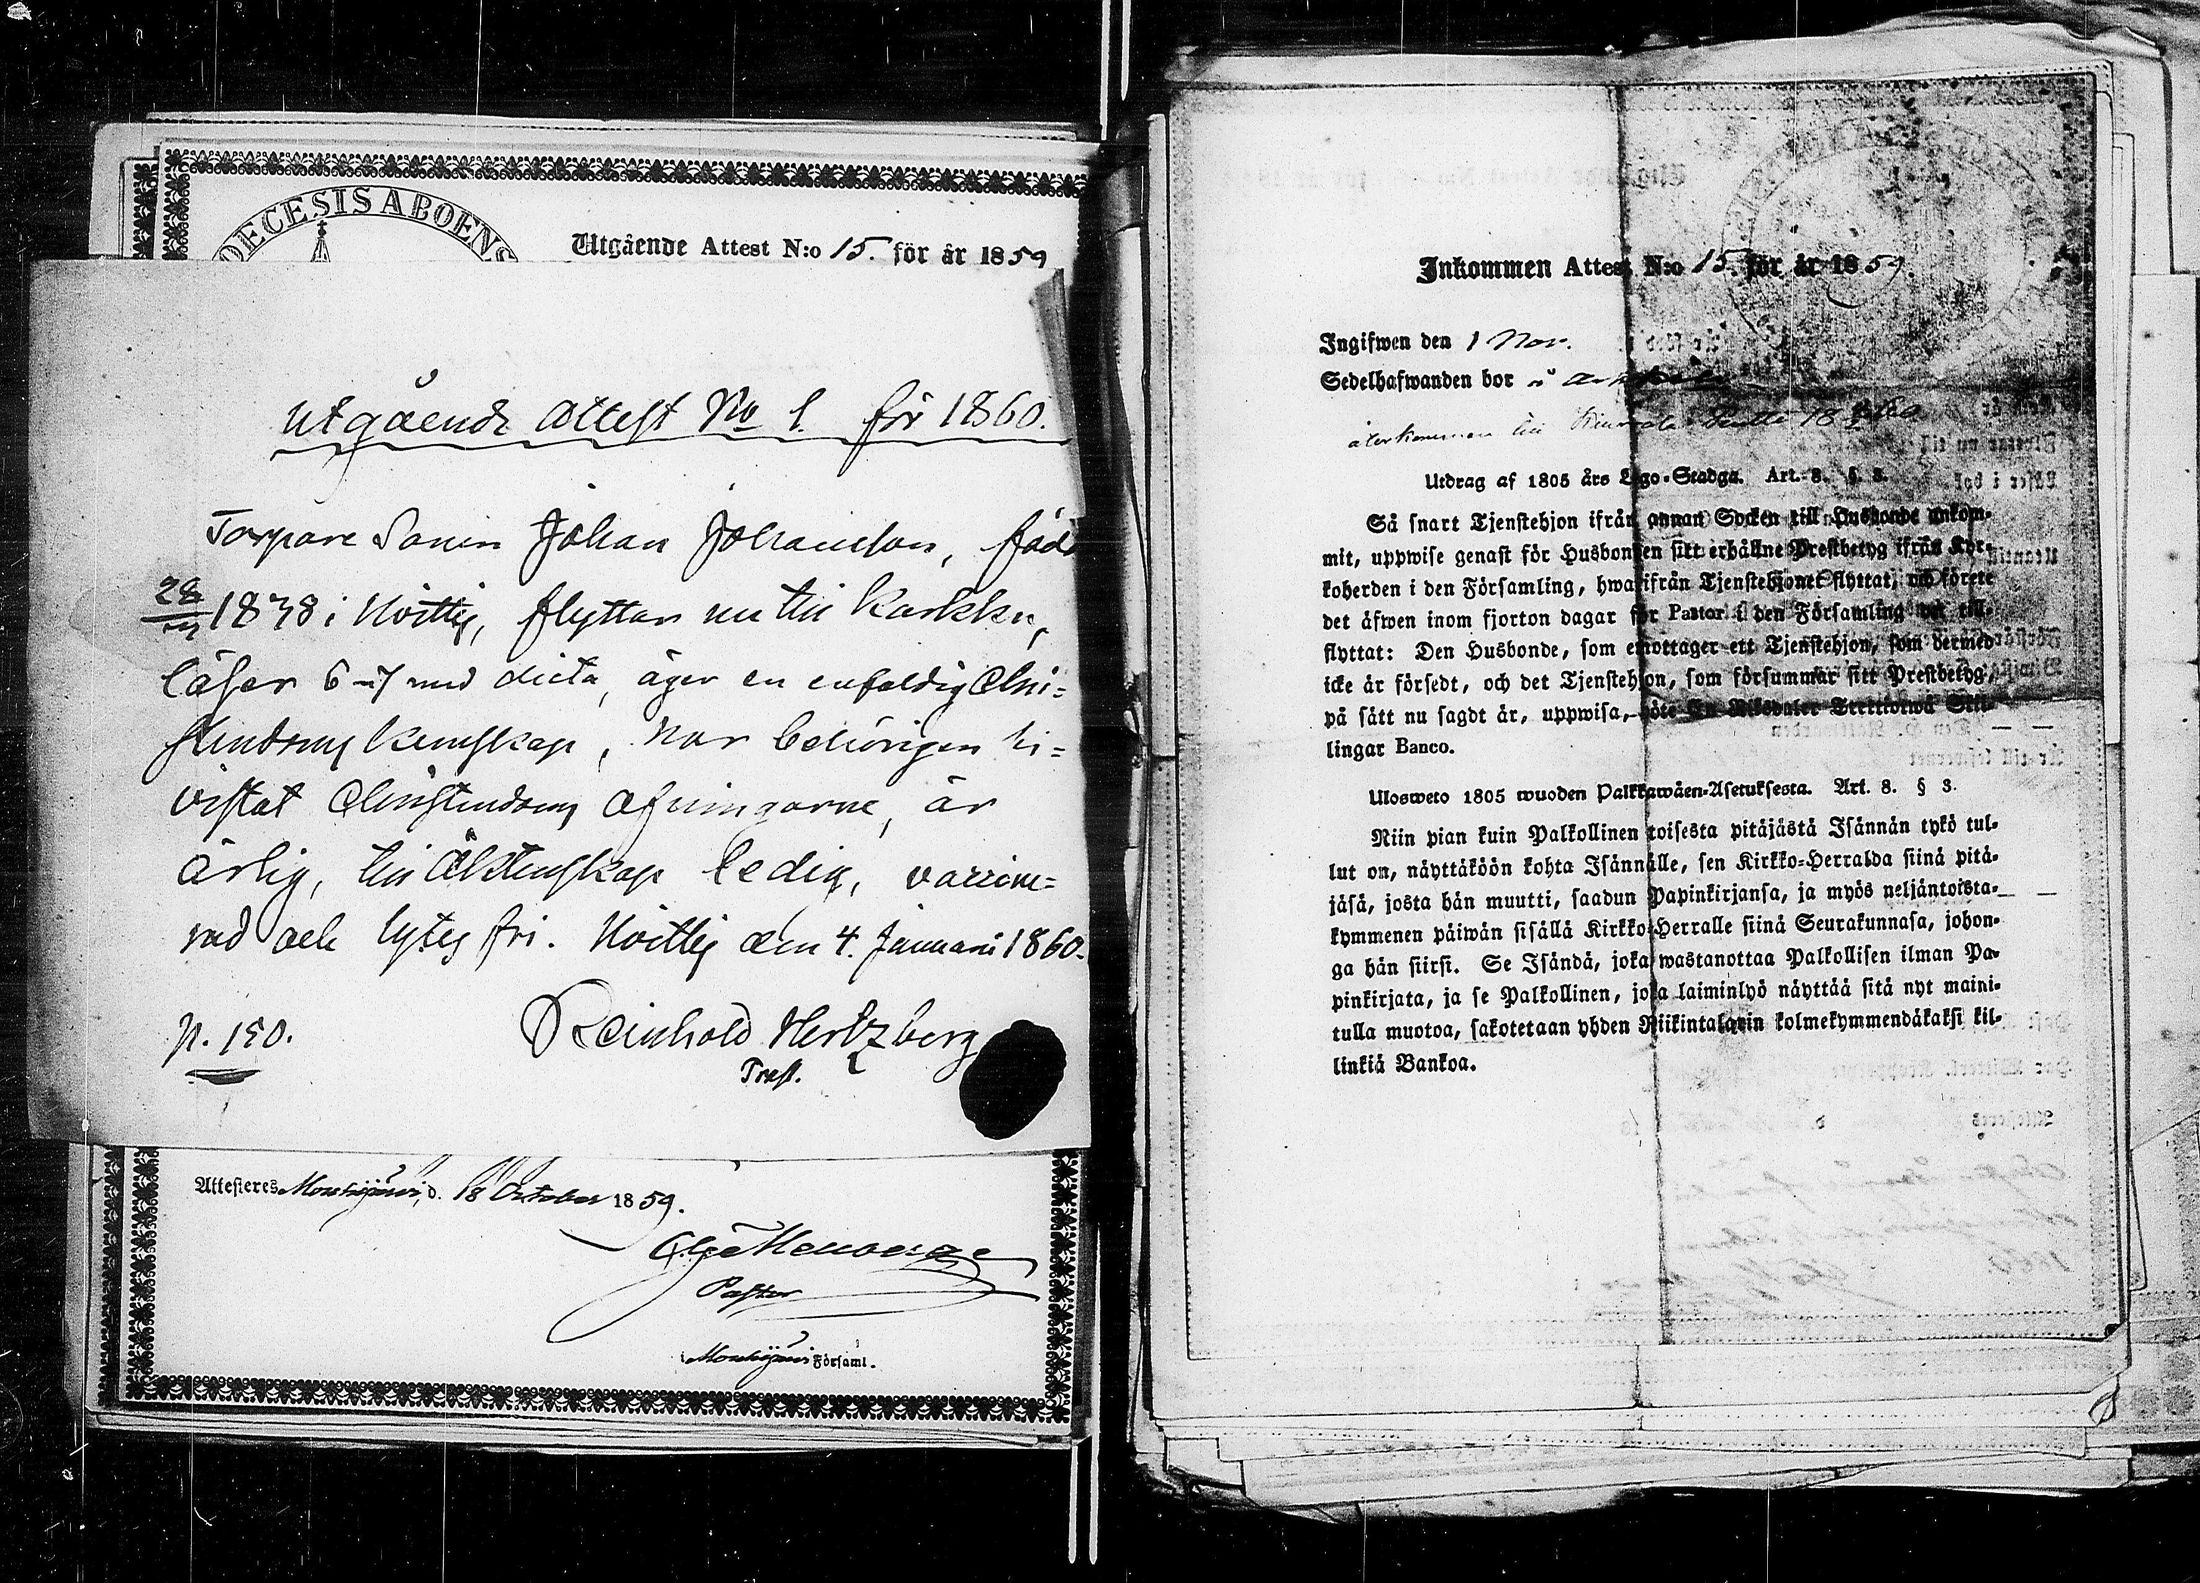 DECESIS ABOENS
Utgående Attest N:o 15. för år 1859
Utgående Attest No 1. för 1860.
Torpare Sonen Johan Johansson, född
28/ 1838 i Hvittis, flyttar nu till Karkku,
läser 6-7 med dicta, äger en enfaldig Chri-
stendoms kunskap, har behörigen bi-
vistat Christendoms öfningarne, är
ärlig, till Äktenskap ledig, vaccine-
rad och lytes fri. Hvittis den 4. Januari 1860.
p. 150.
Reinhold Hertzberg
Attesteres Mouhijärvi, d. 18 October 1859.
Pastor
i Mouhijärvi Församl.
Inkommen Attest N:o 15. för år 1859.
Ingifwen den 1 Nov.
Sedelhafwanden bor i
återkommen till
Utdrag af 1805 års Lego-Stadga. Art. 8. §. 3.
Så snart Tjenstehjon ifrån annan Socken till Husbonde ankom-
mit, uppwise genast för Husbonden sitt erhållne Prestbetyg ifrån Kyr-
koherden i den Församling, hwarifrån Tjenstehjonet flyttat, och förete
det äfwen inom fjorton dagar för Pastor i den Församling det till-
flyttat: Den Husbonde, som emottager ett Tjenstehjon, som dermed
icke är försedt, och det Tjenstehjon, som försummar sitt Prestbetyg,
på sätt nu sagdt är, uppwisa, böte En Riksdaler Trettiotwå Skil-
lingar Banco.
Ulosweto 1805 wuoden Palkkawäen-Asetuksesta. Art. 8. § 3.
Niin pian kuin Palkollinen toisesta pitäjästä Isännän tykö tul-
lut on, näyttäköön kohta Isännälle, sen Kirkko-Herralda siinä pitä-
jäsä, josta hän muutti, saadun Papinkirjansa, ja myös neljäntoista-
kymmenen päiwän sisällä Kirkko-Herralle siinä Seurakunnasa, johon-
ga hän siirsi. Se Isändä, joka wastanottaa Palkollisen ilman Pa-
pinkirjata, ja se Palkollinen, joka laiminlyö näyttää sitä nyt maini-
tulla muotoa, sakotetaan yhden Riikintalarin kolmekymmendäkaksi kil-
linkiä Bankoa.